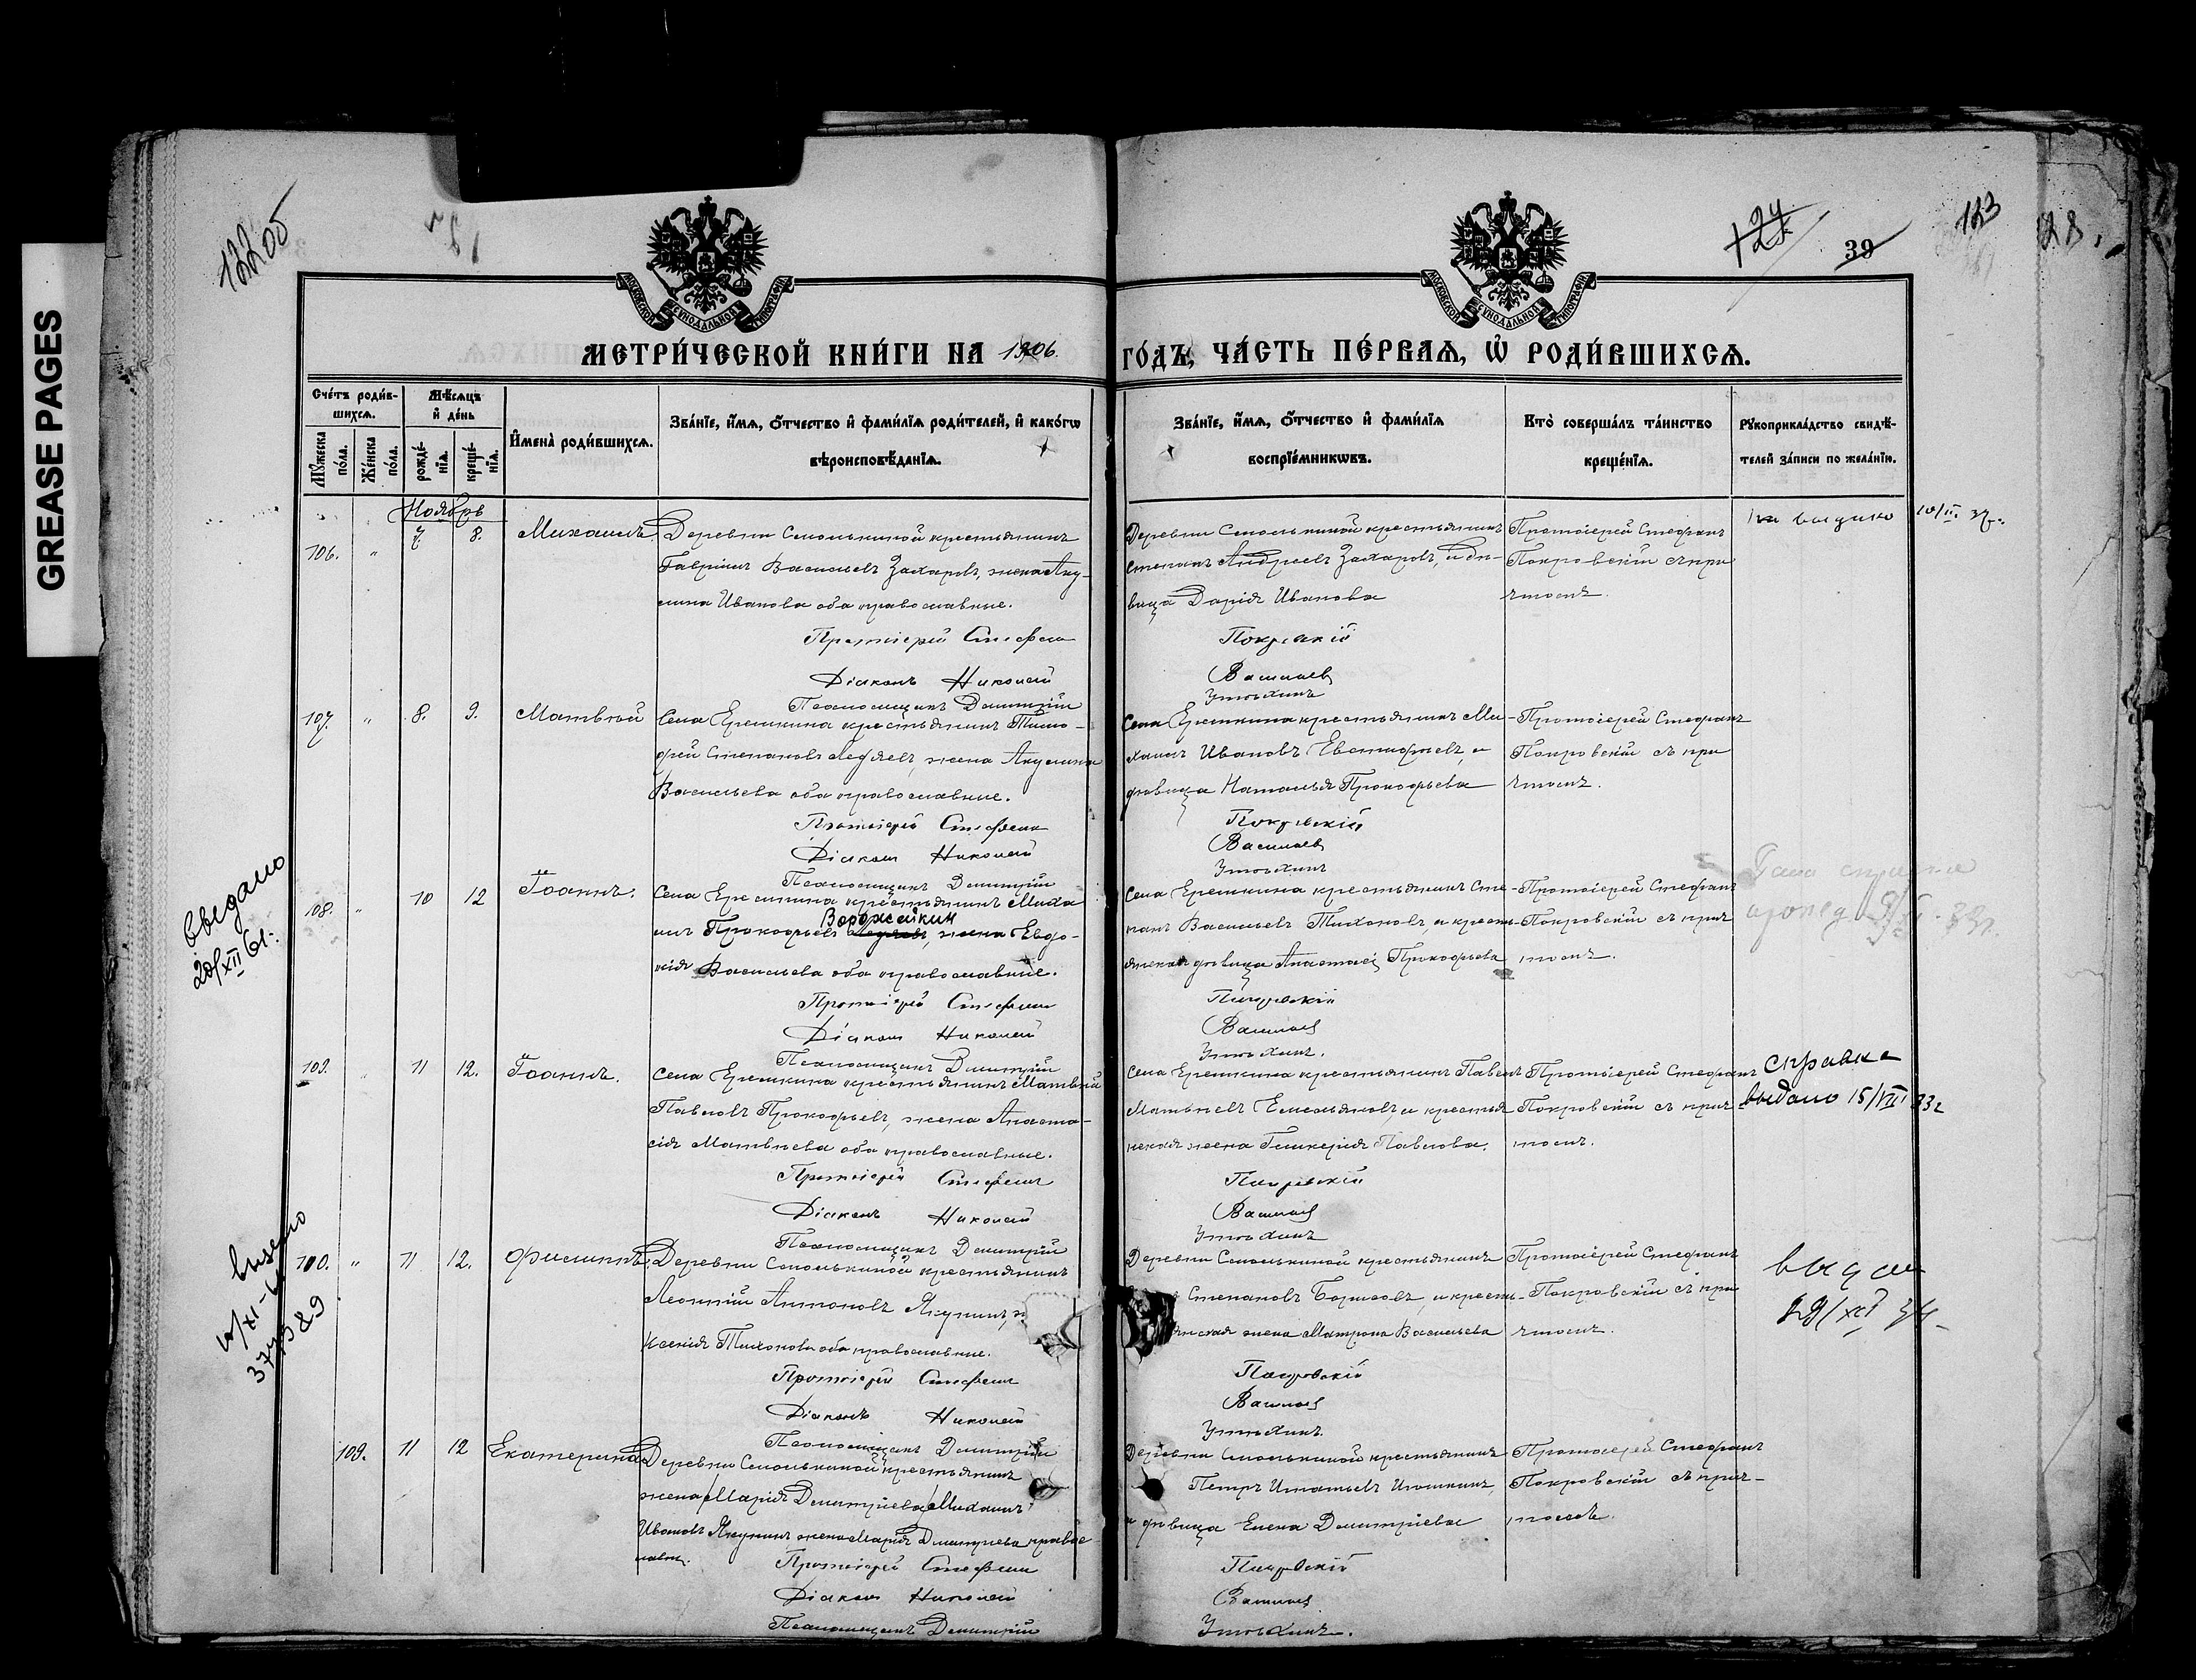 GREASE PAGES
12205
124
39
123
128.
МОСКОВСКОЙ СѴНОДАЛЬНОЙ ТИПОГРАФІИ
МОСКОВСКОЙ СѴНОДАЛЬНОЙ ТИПОГРАФІИ
МЕТРИ́ЧЕСКОЙ КНИ́ГИ НА 1906.
ГО́ДЪ, ЧА́СТЬ ПЕ́РВАѦ, Ѡ҆ РОДИ́ВШИХСѦ.
Сче́тъ роди́в-
шихсѧ.
Мѣ́сѧцъ
и҆ де́нь
Мꙋ́жеска по́ла.
Же́нска по́ла.
рожде́-нїѧ.
креще́-нїѧ.
И҆мена̀ роди́вшихсѧ.
Зва́нїе, и҆́мѧ, ѻ҆́тчество и҆ фами́лїѧ роди́телей, и҆ како́гѡ
вѣроисповѣ́данїѧ.
Зва́нїе, и҆́мѧ, ѻ҆́тчество и҆ фами́лїѧ
воспрїе́мникѡвъ.
Кто̀ соверша́лъ та́инство
креще́нїѧ.
Рꙋкоприкла́дство свидѣ́-
телей за́писи по жела́нїю.
Ноябрь
106. " 7 8. Михаилъ. Деревни Сеполькиной крестьянинъ
Гавріилъ Васильевъ Захаровъ, жена Аку-
лина Иванова оба православные.
Протоіерей Стефан
Діаконъ Николай
Псаломщикъ Димитрій
Деревни Сеполькиной крестьянинъ
Степанъ Андреевъ Захаровъ, и дѣ-
вица Дарія Иванова
Покровскій
Васильев
Утѣхинъ
Протоіерей Стефанъ
Покровскій съ при
чтомъ.
выдано
107. " 8. 9. Матвѣй Села Ерепкина крестьянинъ Тимо-
фей Степановъ Медяев, жена Акулина
Васильева оба православные.
Протоіерей Стефан
Діакон Николай
Псаломщикъ Димитрій
Села Ерепкина крестьянинъ Ми-
хаилъ Ивановъ Евстифѣевъ, и
дѣвица Наталья Прокофьева
Покровскій
Васильев
Утѣхинъ
Протоіерей Стефанъ
Покровскій съ при
чтомъ.
Выдано
20/XII 61.
108. " 10 12 Іоаннъ. Села Ерепкина крестьянинъ Миха
илъ Прокофьевъ Ворожейкин, жена Евдо-
кія Васильева оба православные.
Протоіерей Стефан
Діакон Николай
Псаломщикъ Димитрій
Села Ерепкина крестьянинъ Сте-
панъ Васильевъ Тихоновъ, и кресть-
янская дѣвица Анастасі Прокофьева
Покровскій
Васильев
Утѣхинъ.
Протоіерей Стефанъ
Покровскій съ прич
томъ.
109. " 11 12. Іоаннъ. Села Ерепкина крестьянинъ Матвѣй
Павловъ Прокофьев, жена Анаста-
сія Матвѣева оба православные.
Протоіерей Стефан
Діаконъ Николай
Псаломщикъ Димитрій
Села Ерепкина крестьянинъ Павелъ
Матвѣевъ Емельяновъ, и крестья
нская жена Гликерія Павлова.
Покровскій
Васильев
Утѣхинъ
Протоіерей Стефанъ
Покровскій съ прич
томъ.
справка
выдано 15/VIII 33г
110. " 11 12. Филиппъ. Деревни Сеполькиной крестьянинъ
Леонтій Антоновъ Якунин,
Ксенія Тихонова оба православные.
Протоіерей Стефан
Діаконъ Николай
Псаломщикъ Димитрій
Деревни Сеполькиной крестьянинъ
Степановъ Борисовъ, и кресть-
янская жена Матрона Васильева
Покровскій
Васильев
Утѣхинъ.
Протоіерей Стефанъ
Покровскій съ при
чтомъ.
109. 11 12 Екатерина Деревни Сеполькиной крестьянинъ
жена Марія Димитріева Михаилъ
Ивановъ Якунин жена Марія Димитріева правос
лавн.
Протоіерей Стефан
Діакон Николай
Псаломщикъ Димитрій
Деревни Сеполькиной крестьянинъ
Петръ Игнатьевъ Илюшкинъ,
и дѣвица Елена Димитріева
Покровскій
Васильев
Утѣхинъ.
Протоіерей Стефанъ
Покровскій съ прич-
томъ.